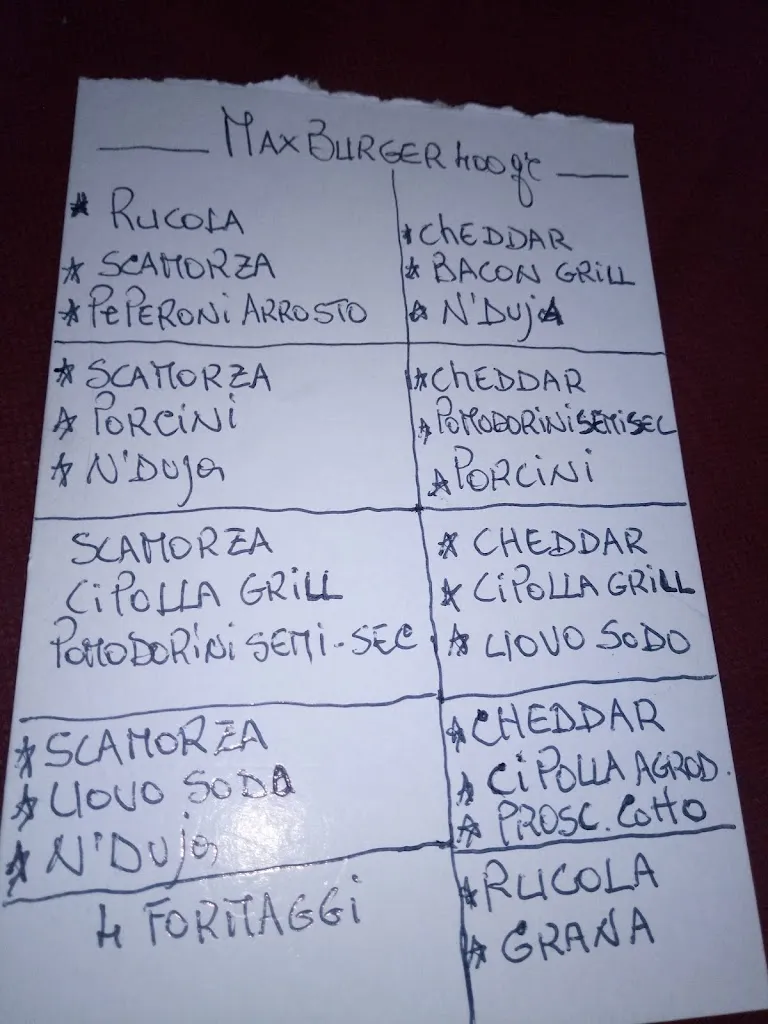 MAX BURGER 400 g
* RUCOLA
* SCAMORZA
* PEPERONI ARROSTO
* CHEDDAR
* BACON GRILL
* N'DUJA
* SCAMORZA
* PORCINI
* N'DUJA
* CHEDDAR
* POMODORINI SEMI SEC
* PORCINI
SCAMORZA
CIPOLLA GRILL
POMODORINI SEMI-SEC
* CHEDDAR
* CIPOLLA GRILL
* UOVO SODO
* SCAMORZA
* UOVO SODO
* N'DUJA
* CHEDDAR
* CIPOLLA AGROD.
* PROSC. COTTO
4 FORMAGGI
* RUCOLA
* GRANA